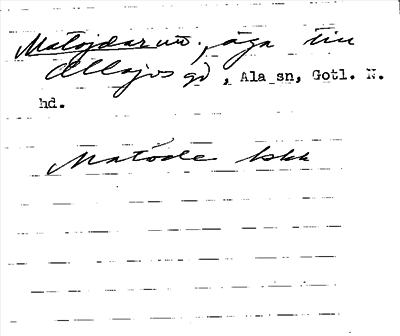 Matojdarna, äga till
Allajvs gd, Ala sn, Gotl. N.
hd.
Matöde bskk